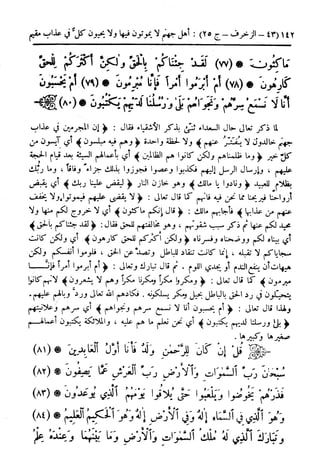 ١٤٢ (٤٣) - الزخرف - ج ٢٥) : أهل جهنم لا يموتون فيها ولا يحيون كلٌّ في عذاب مقيم
مَاكِثُونَ ۞ (٧٧) لَقَدْ جِئْنَاكُمْ بِالْحَقِّ وَلٰكِنَّ أَكْثَرَكُمْ لِلْحَقِّ
كَارِهُونَ ۞ (٧٨) أَمْ أَبْرَمُوا أَمْرًا فَإِنَّا مُبْرِمُونَ ۞ (٧٩) أَمْ يَحْسَبُونَ
أَنَّا لَا نَسْمَعُ سِرَّهُمْ وَنَجْوَاهُمْ بَلَىٰ وَرُسُلُنَا لَدَيْهِمْ يَكْتُبُونَ ۞ (٨٠)
لما ذكر تعالى حال السعداء ثنَّى بذكر الأشقياء فقال : ﴿ إن المجرمين في عذاب
جهنم خالدون لا يُفتَّر عنهم ﴾ ولا لحظة واحدة ﴿ وهم فيه مبلسون ﴾ أي آيسون من
كل خير ﴿ وما ظلمناهم ولكن كانوا هم الظالمين ﴾ أي بأعمالهم السيئة بعد قيام الحجة
عليهم ، وإرسال الرسل إليهم فكذبوا وعصوا فجوزوا بذلك جزاءً وفاقاً ، وما ربُّك
بظلام للعبيد ﴿ ونادوا يا مالك ﴾ وهو خازن النار ﴿ ليقض علينا ربك ﴾ أي يقبض
أرواحنا فيريحنا مما نحن فيه فإنهم كما قال تعالى : ﴿ لا يقضى عليهم فيموتوا ولا يخفف
عنهم من عذابها ﴾ فأجابهم مالك : ﴿ قال إنكم ماكثون ﴾ أي لا خروج لكم منها ولا
محيد لكم عنها ثم ذكر سبب شقوتهم ، وهو مخالفتهم للحق فقال : ﴿ لقد جئناكم بالحق ﴾
أي بيناه لكم ووضحناه وفسرناه ﴿ ولكن أكثركم للحق كارهون ﴾ أي ولكن كانت
سجاياكم لا تقبله ، إنما كانت تنقاد للباطل وتصدّ عن الحق ، فلوموا أنفسكم
هيهات أن ينفع الندم أو يجدي اللوم . ثم قال تبارك وتعالى : ﴿ أم أبرموا أمراً فإنّا
مبرمون ﴾ كما قال تعالى : ﴿ ومكروا مكراً ومكرنا مكراً وهم لا يشعرون ﴾ لأنهم كانوا
يتحيلون في رد الحق بالباطل بحيل ومكر يسلكونه . فكادهم الله تعالى وردَّ وبالهم عليهم .
ولهذا قال تعالى : ﴿ أم يحسبون أنا لا نسمع سرهم ونجواهم ﴾ أي سرهم وعلانيتهم
﴿ بلى ورسلنا لديهم يكتبون ﴾ أي نحن نعلم ما هم عليه ، والملائكة يكتبون أعمالهم
صغيرها وكبيرها .
قُلْ إِنْ كَانَ لِلرَّحْمٰنِ وَلَدٌ فَأَنَا أَوَّلُ الْعَابِدِينَ ۞ (٨١)
سُبْحَانَ رَبِّ السَّمٰوَاتِ وَالْأَرْضِ رَبِّ الْعَرْشِ عَمَّا يَصِفُونَ ۞ (٨٢)
فَذَرْهُمْ يَخُوضُوا وَيَلْعَبُوا حَتَّىٰ يُلَاقُوا يَوْمَهُمُ الَّذِي يُوعَدُونَ ۞ (٨٣)
وَهُوَ الَّذِي فِي السَّمَاءِ إِلٰهٌ وَفِي الْأَرْضِ إِلٰهٌ وَهُوَ الْحَكِيمُ الْعَلِيمُ ۞ (٨٤)
وَتَبَارَكَ الَّذِي لَهُ مُلْكُ السَّمٰوَاتِ وَالْأَرْضِ وَمَا بَيْنَهُمَا وَعِنْدَهُ عِلْمُ